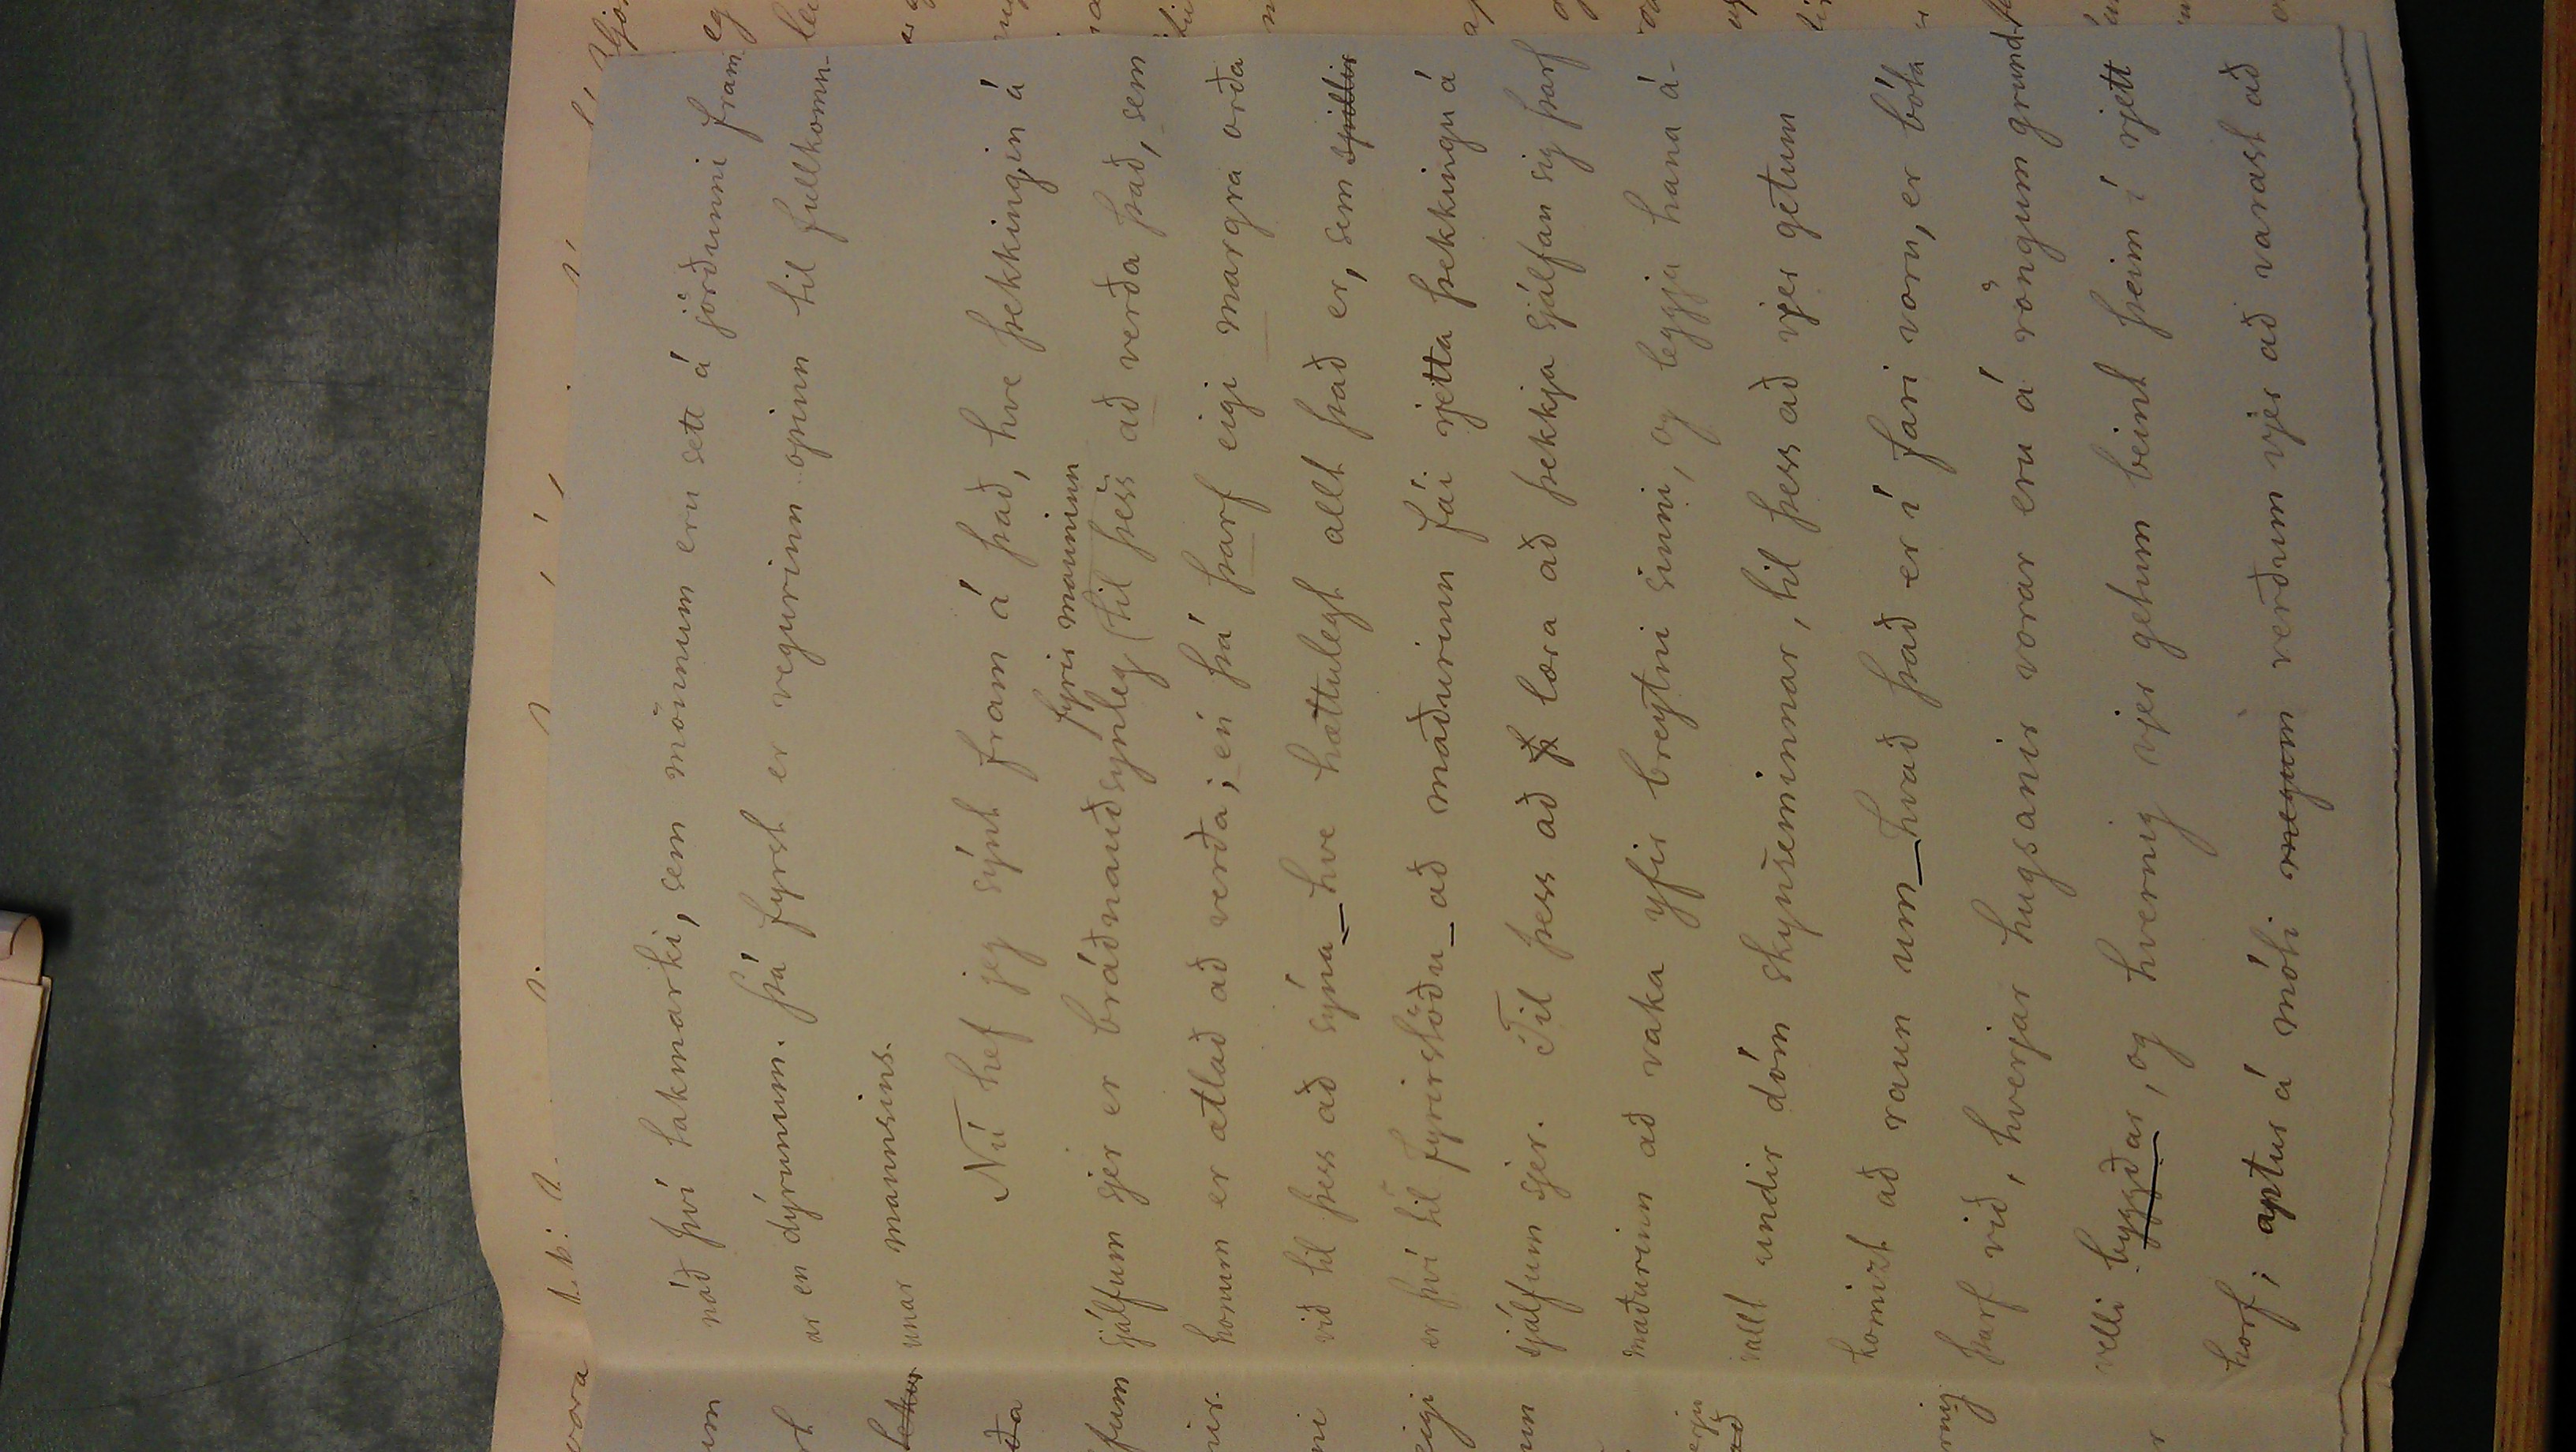 náð því takmarki, sem mönnum eru sett á jörðunni fram
ar en dýrunum. Þá fyrst er vegurinn opinn til fullkomn-
unar mannsins.
Nú hef jeg sýnt fram á það, hve þekkingin á
fyrir manninn
sjálfum sjer er bráðnauðsynleg (til þess að verða það, sem
honum er ætlað að verða; en þá þarf eigi margra orða
við til þess að sýna hve hættulegt allt það er, sem spillir
er því til fyrirstöðu að maðurinn fái rjetta þekkingu á
sjálfum sjer. Til þess að þ læra að þekkja sjálfan sig þarf
maðurinn að vaka yfir breytni sinni, og leggja hana á-
vallt undir dóm skynseminnar, til þess að vjer getum
komizt að raun um hvað það er í fari voru, er bóta
þarf við, hverjar hugsanir vorar eru á röngum grund-
velli byggðar, og hvernig vjer getum beint þeim í rjett
horf; aptur á móti megum verðum vjer að varast að